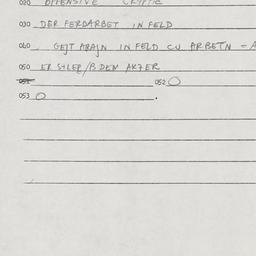 020 OFFENSIVE CRYPTIC
030 DER FERDARBET IN FELD
040 GEJT ARAJN IN FELD CU ARBETN - A
050 ER SHLEP/B DEM AKZER
051 052 O
053 O .